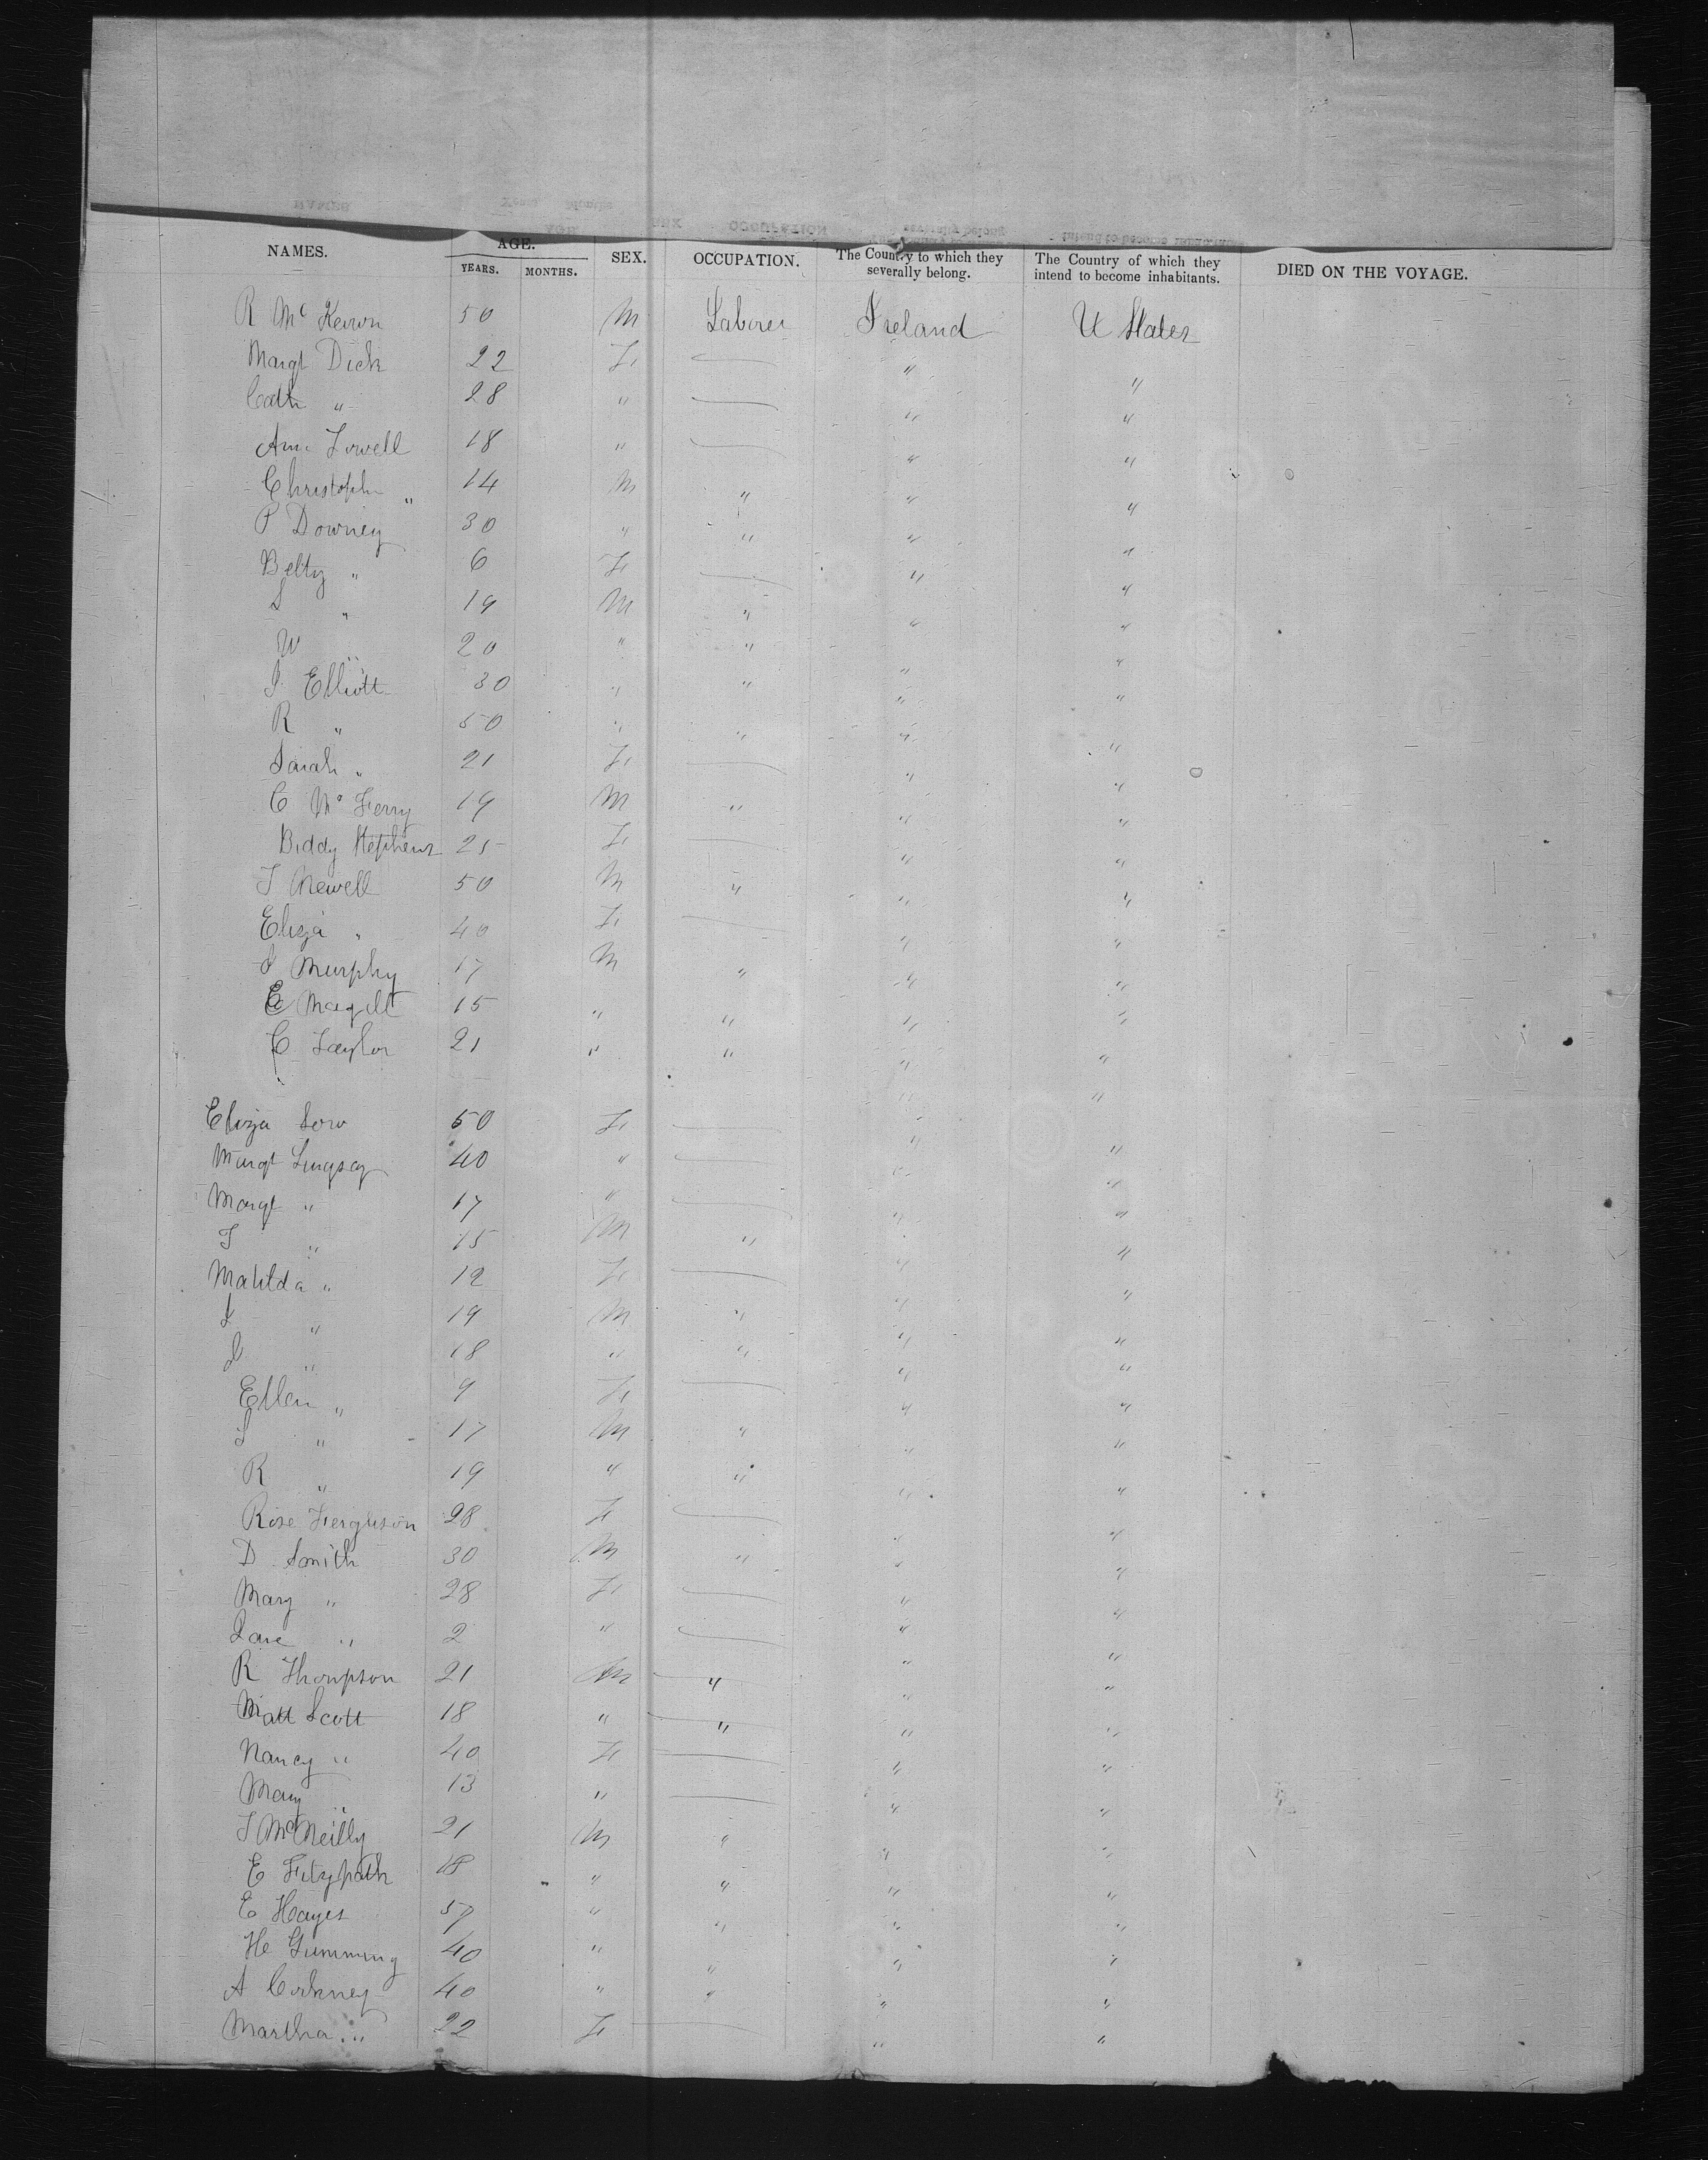 NAMES. AGE. YEARS. MONTHS. SEX. OCCUPATION. The Country to which they severally belong. The Country of which they intend to become inhabitants. DIED ON THE VOYAGE.
R Mc Keown 50 M Laborer Ireland U States
Margt Dick 22 F " "
Cath " 28 " " "
Ann Lowell 18 " " "
Christophr " 14 M " " "
P Downey 30 " " " "
Betty " 6 F " "
S " 19 M " " "
W " 20 " " " "
J Elliott 30 " " " "
R " 50 " " " "
Sarah " 21 F " "
C Mc Ferry 19 M " " "
Biddy Stephens 25 F " "
J Newell 50 M " " "
Eliza " 40 F " "
J Murphy 17 M " " "
E Magill 15 " " " "
C Taylor 21 " " " "
Eliza 50 F " "
Margt Lingsey 40 " " "
Margt " 17 " " "
T " 15 M " " "
Matilda " 12 F " "
" 19 M " " "
" 18 " " " "
Ellen " 9 F " "
S " 17 M " " "
R " 19 " " " "
Rose Ferguson 28 F " "
D Smith 30 M " " "
Mary " 28 F " "
Jane " 2 " " "
R Thompson 21 M " " "
Matt Scott 18 " " " "
Nancy " 40 F " "
Mary " 13 " " "
J McNeilly 21 M " " "
E Fitzpatk 18 " " " "
E Hayes 57 " " " "
H Gumming 40 " " " "
A Corkney 40 " " " "
Martha " 22 F " "